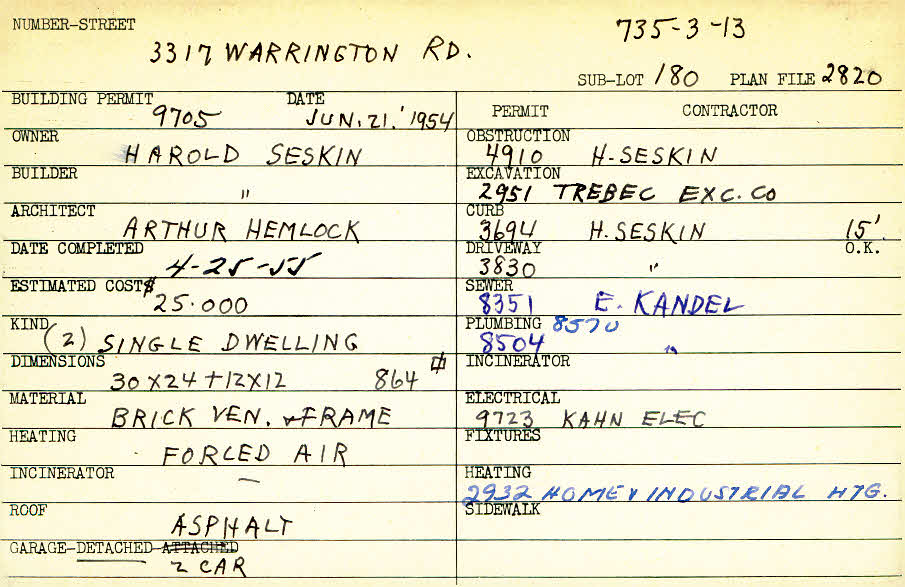 NUMBER-STREET
735-3-13
3317 WARRINGTON RD.
SUB-LOT 180 PLAN FILE 2820
BUILDING PERMIT DATE
9705 JUN. 21. '1954
OWNER
HAROLD SESKIN
BUILDER
"
ARCHITECT
ARTHUR HEMLOCK
DATE COMPLETED
4-25-55
ESTIMATED COST $
25.000
KIND
(2) SINGLE DWELLING
DIMENSIONS
30 X 24 + 12 X 12 864
MATERIAL
BRICK VEN. & FRAME
HEATING
FORCED AIR
INCINERATOR
—
ROOF
ASPHALT
GARAGE-DETACHED-ATTACHED
2 CAR
PERMIT CONTRACTOR
OBSTRUCTION
4910 H-SESKIN
EXCAVATION
2951 TREBEC EXC. CO
CURB
3694 H. SESKIN 15'
DRIVEWAY O.K.
3830 "
SEWER
8351 E. KANDEL
PLUMBING 8570
8504 "
INCINERATOR
ELECTRICAL
9723 KAHN ELEC
FIXTURES
HEATING
2932 HOME & INDUSTRIAL HTG.
SIDEWALK